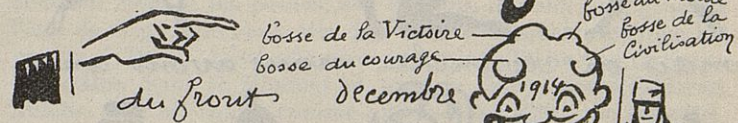 bosse de la Victoire
bosse du courage
bosse du
bosse de la
Civilisation
du front decembre 1914